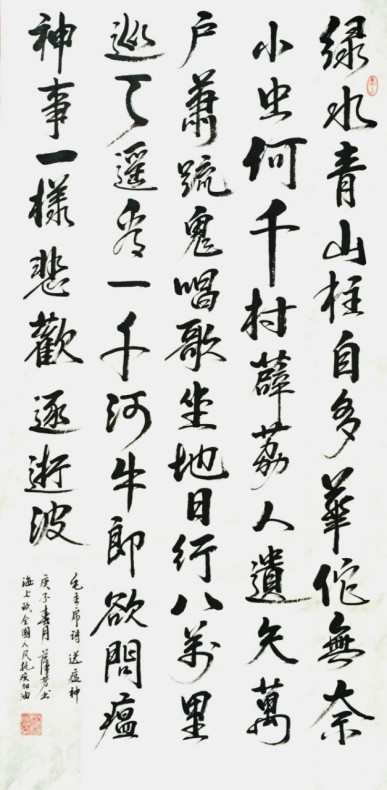 緑水青山枉自多華佗無奈
小虫何千村薜荔人遺矢萬
户蕭疏鬼唱歌坐地日行八萬里
巡天遥看一千河牛郎欲問瘟
神事一樣悲歡逐逝波
毛主席詩送瘟神
庚子春月書
海上致全國人民抗疫加油